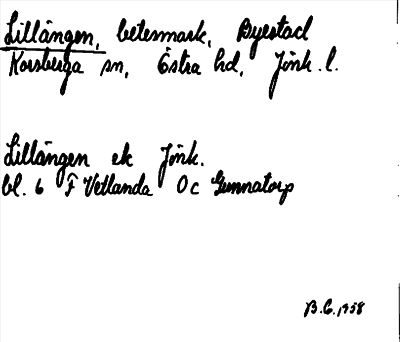 Lillängen, betesmark, Byestad
Korsberga sn, Östra hd, Jönk. l.
Lillängen ek Jönk.
bl. 6 F Vetlanda Oc Gunnatorp
B.G. 1958